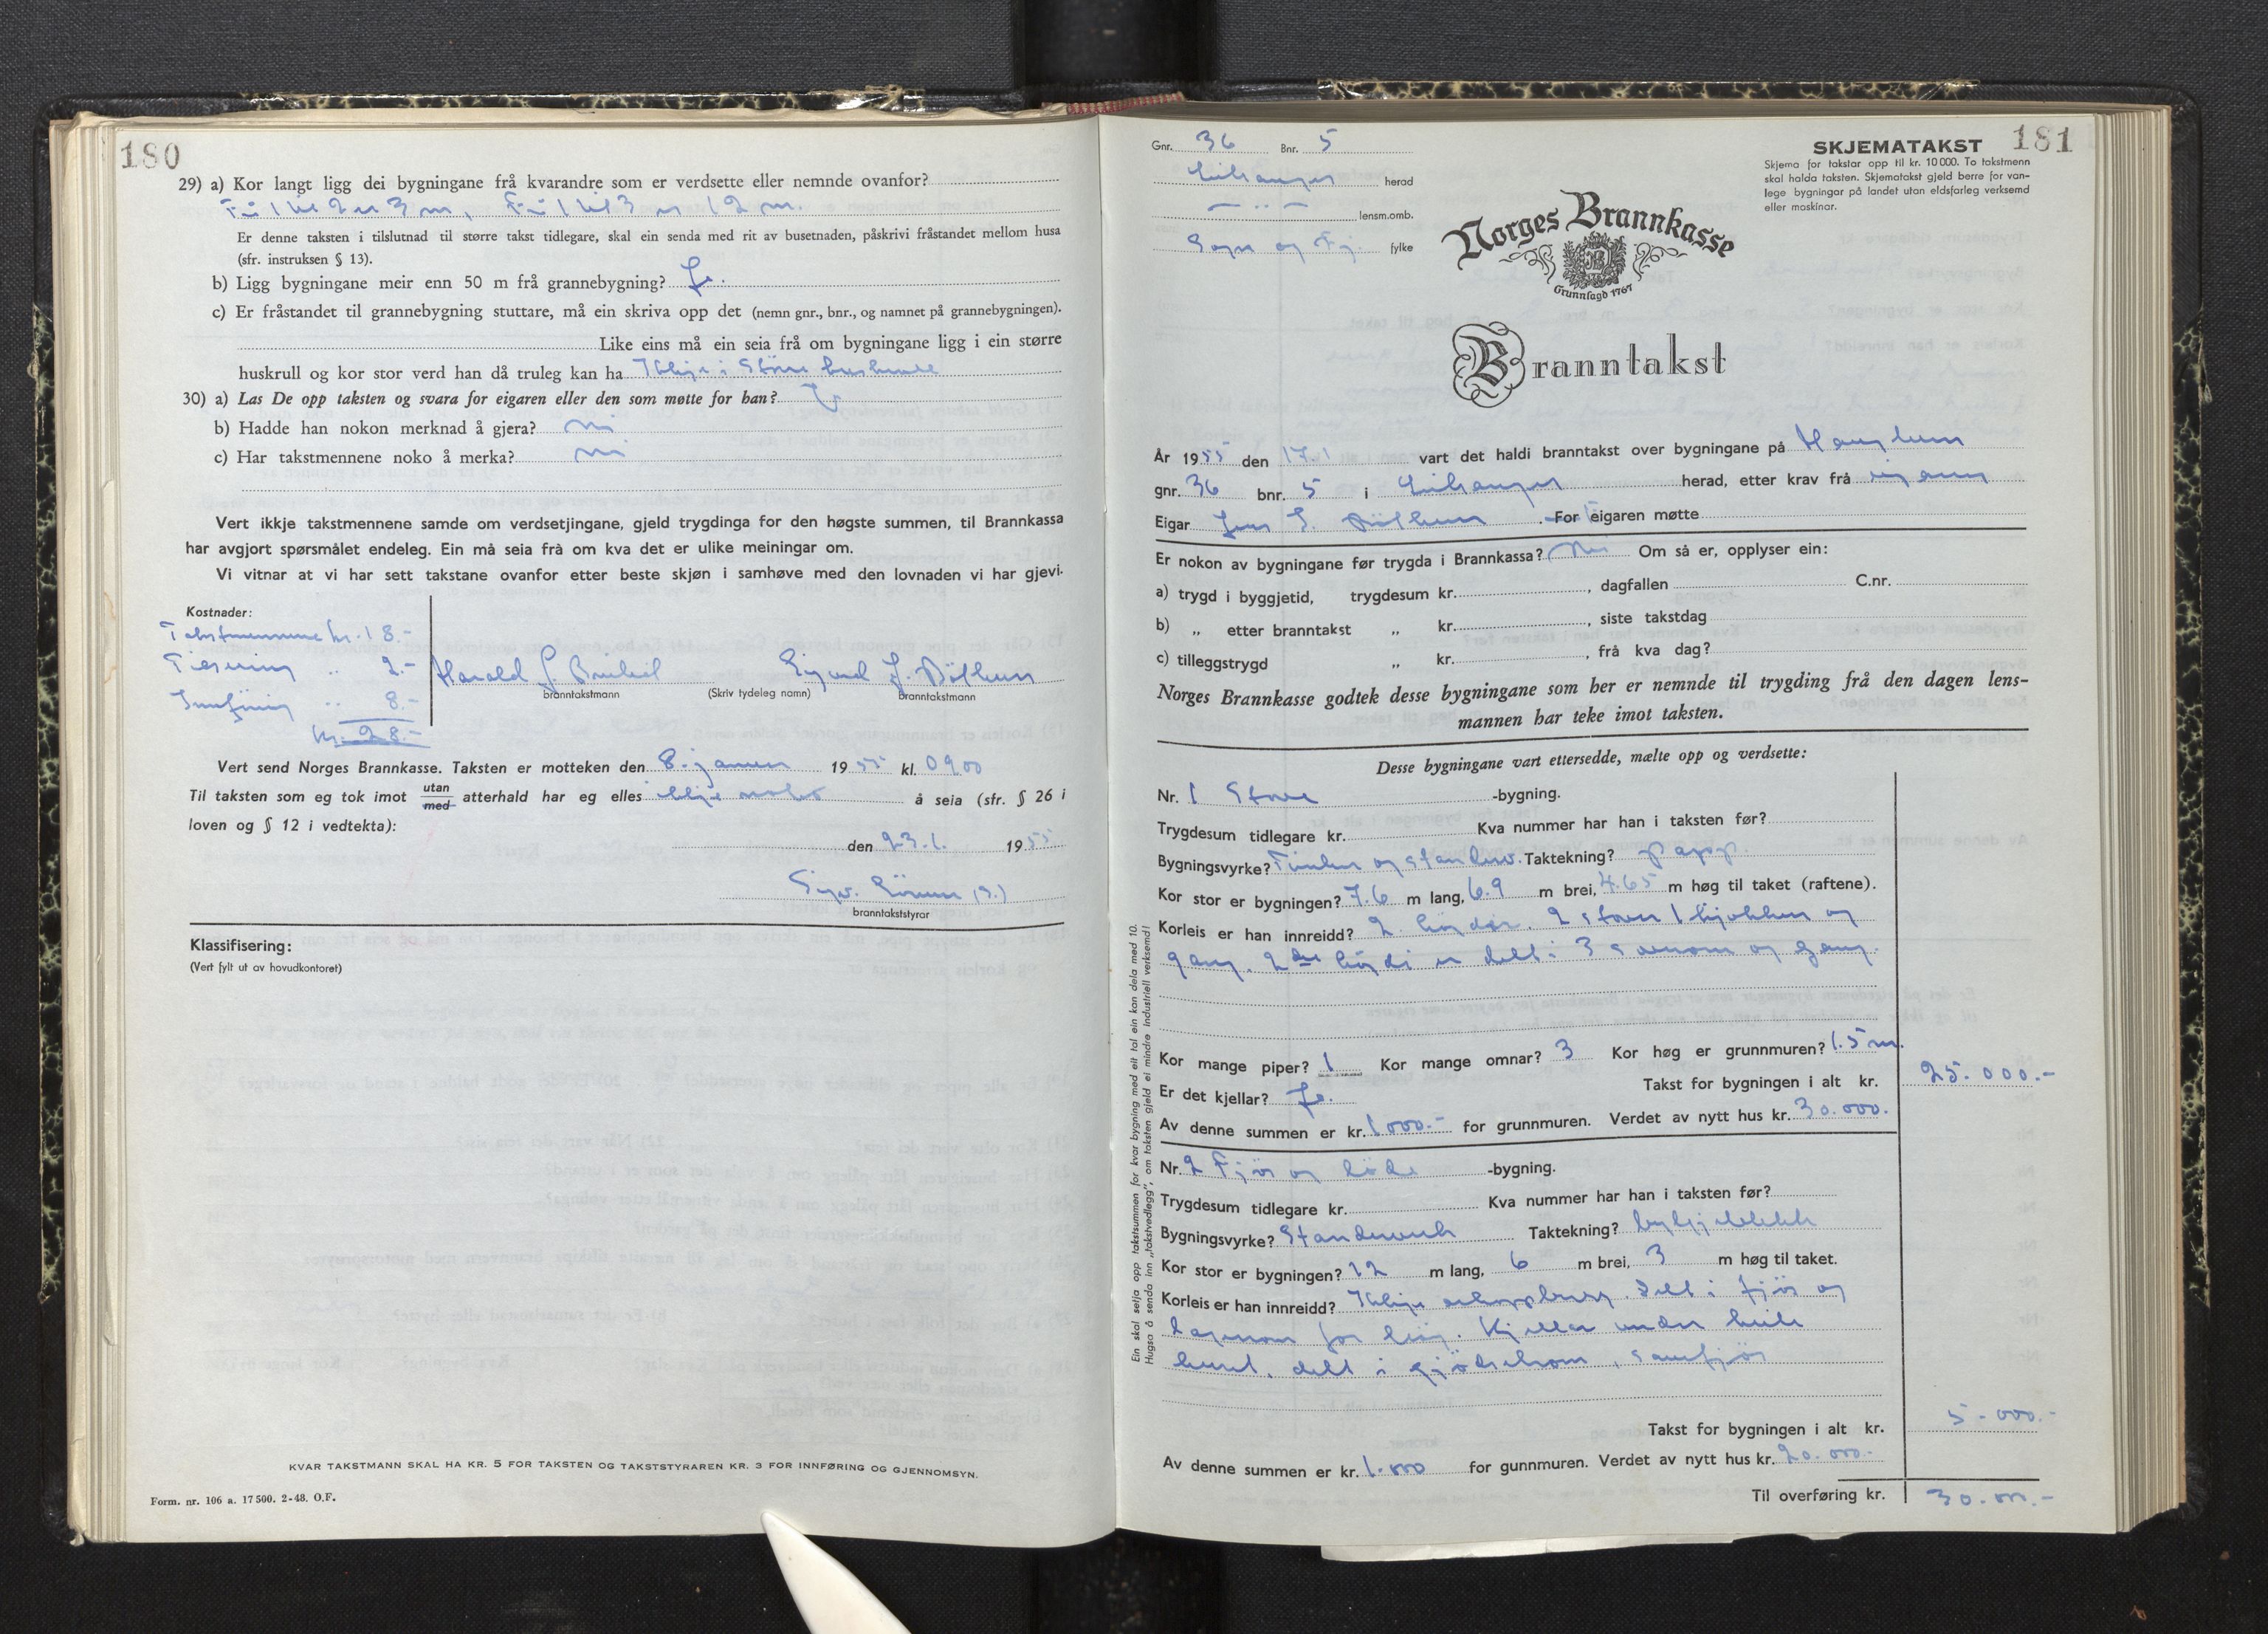 180
29) a) Kor langt ligg dei bygningane frå kvarandre som er verdsette eller nemnde ovanfor?
Frå 1 til 2 er 3 m, Frå 1 til 3 er 12 m.
Er denne taksten i tilslutnad til større takst tidlegare, skal ein senda med rit av busetnaden, påskrivi fråstandet mellom husa
(sfr. instruksen § 13).
b) Ligg bygningane meir enn 50 m frå grannebygning? Ja.
c) Er fråstandet til grannebygning stuttare, må ein skriva opp det (nemn gnr., bnr., og namnet på grannebygningen).
Like eins må ein seia frå om bygningane ligg i ein større
huskrull og kor stor verd han då truleg kan ha Ikkje i större
30) a) Las De opp taksten og svara for eigaren eller den som møtte for han?
b) Hadde han nokon merknad å gjera? nei
c) Har takstmennene noko å merka? nei
Vert ikkje takstmennene samde om verdsetjingane, gjeld trygdinga for den høgste summen, til Brannkassa
har avgjort spørsmålet endeleg. Ein må seia frå om kva det er ulike meiningar om.
Vi vitnar at vi har sett takstane ovanfor etter beste skjøn i samhøve med den lovnaden vi har gjevi.
Kostnader:
Takstmennene kr. 18.-
2.-
Innföring " 8.-
kr. 28.-
Harald J. Eigind J. Dölheim
branntakstmann (Skriv tydeleg namn) branntakstmann
Vert send Norges Brannkasse. Taksten er motteken den 8. januar 1955 kl. 0900
Til taksten som eg tok imot utan med atterhald har eg elles ikkje noko å seia (sfr. § 26 i
loven og § 12 i vedtekta):
den 23.1. 1955
(s.)
branntakststyrar
Klassifisering:
(Vert fylt ut av hovudkontoret)
KVAR TAKSTMANN SKAL HA KR. 5 FOR TAKSTEN OG TAKSTSTYRAREN KR. 3 FOR INNFØRING OG GJENNOMSYN.
Form. nr. 106 a. 17 500. 2-48. O.F.
181
Gnr. 36 Bnr. 5
Leikanger herad
— " — lensm.omb.
Sogn og Fj. fylke
SKJEMATAKST
Skjema for takstar opp til kr. 10 000. To takstmenn
skal halda taksten. Skjematakst gjeld berre for van-
lege bygningar på landet utan eldsfarleg verksemd
eller maskinar.
Norges Brannkasse
Grunnlagd 1767
Branntakst
År 1955 den 17.1 vart det haldi branntakst over bygningane på
gnr. 36 bnr. 5 i Leikanger herad, etter krav frå eigaren
Eigar Jens . For eigaren møtte
Er nokon av bygningane før trygda i Brannkassa? Nei Om så er, opplyser ein:
a) trygd i byggjetid, trygdesum kr. , dagfallen C.nr.
b) „ etter branntakst „ kr. , siste takstdag
c) tilleggstrygd „ kr. , frå kva dag?
Norges Brannkasse godtek desse bygningane som her er nemnde til trygding frå den dagen lens-
mannen har teke imot taksten.
Desse bygningane vart ettersedde, mælte opp og verdsette:
Nr. 1 Stove -bygning.
Trygdesum tidlegare kr. Kva nummer har han i taksten før?
Bygningsvyrke? Timber og standerv. Taktekning? papp.
Kor stor er bygningen? 7.6 m lang, 6.9 m brei, 4.65 m høg til taket (raftene).
Korleis er han innreidd? 2 högder. 2 stover 1 kjökken og
gang. 2dre högdi er delt i 3 soverom og gang.
Kor mange piper? 1 Kor mange omnar? 3 Kor høg er grunnmuren? 1.5 m.
Er det kjellar? Ja. Takst for bygningen i alt kr. 25.000.-
Av denne summen er kr. 1000.- for grunnmuren. Verdet av nytt hus kr. 30.000.
Nr. 2 Fjös og löde -bygning.
Trygdesum tidlegare kr. Kva nummer har han i taksten før?
Bygningsvyrke? Standerverk Taktekning?
Kor stor er bygningen? 12 m lang, 6 m brei, 3 m høg til taket.
Korleis er han innreidd? Ikkje Delt i fjös og
lagerrom for höy. Kjellar under heile
huset, delt i gjödselrom, sauefjös
Takst for bygningen i alt kr. 5.000.-
Av denne summen er kr. 1.000 for gunnmuren. Verdet av nytt hus kr. 20.000.-
Til overføring kr. 30.000.-
Ein skal setja opp takstsummen for kvar bygning med eit tal ein kan dela med 10.
Hugsa å senda inn „takstvedlegg", om taksten gjeld ei mindre industriell verksemd!